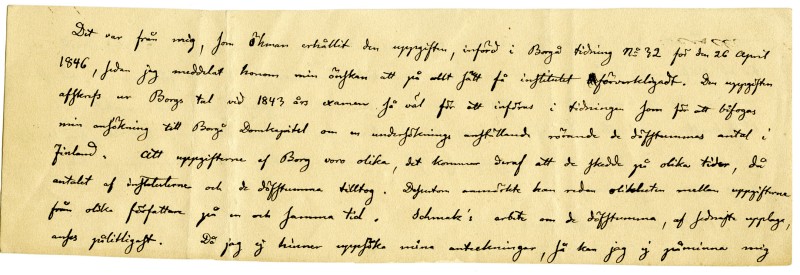 Det var från mig, som Ökman erhållit den uppgiften, införd i Borgå tidning No 32 för den 26 April
1846, sedan jag meddelat honom min önskan att på allt sätt få institutet förverkligadt. Den uppgiften
afskrefs ur Borgs tal vid 1843 års examen så väl för att införas i tidningen som för att bifogas
min ansökning till Borgå Domkapitel om en undersöknings anställande rörande de döfstummas antal i
Finland. Att uppgifterne af Borg voro olika, det kommer deraf att de skedde på olika tider, då
antalet af instituterne och de döfstumma tilltog. Dessutom anmärkte han redan olikheten mellan uppgifterne
från olika författare på en och samma tid. Schmalz's arbete om de döfstumma, af sednaste upplaga,
anses pålitligast. Då jag ej hinner uppsöka mina anteckningar, så kan jag ej påminna mig